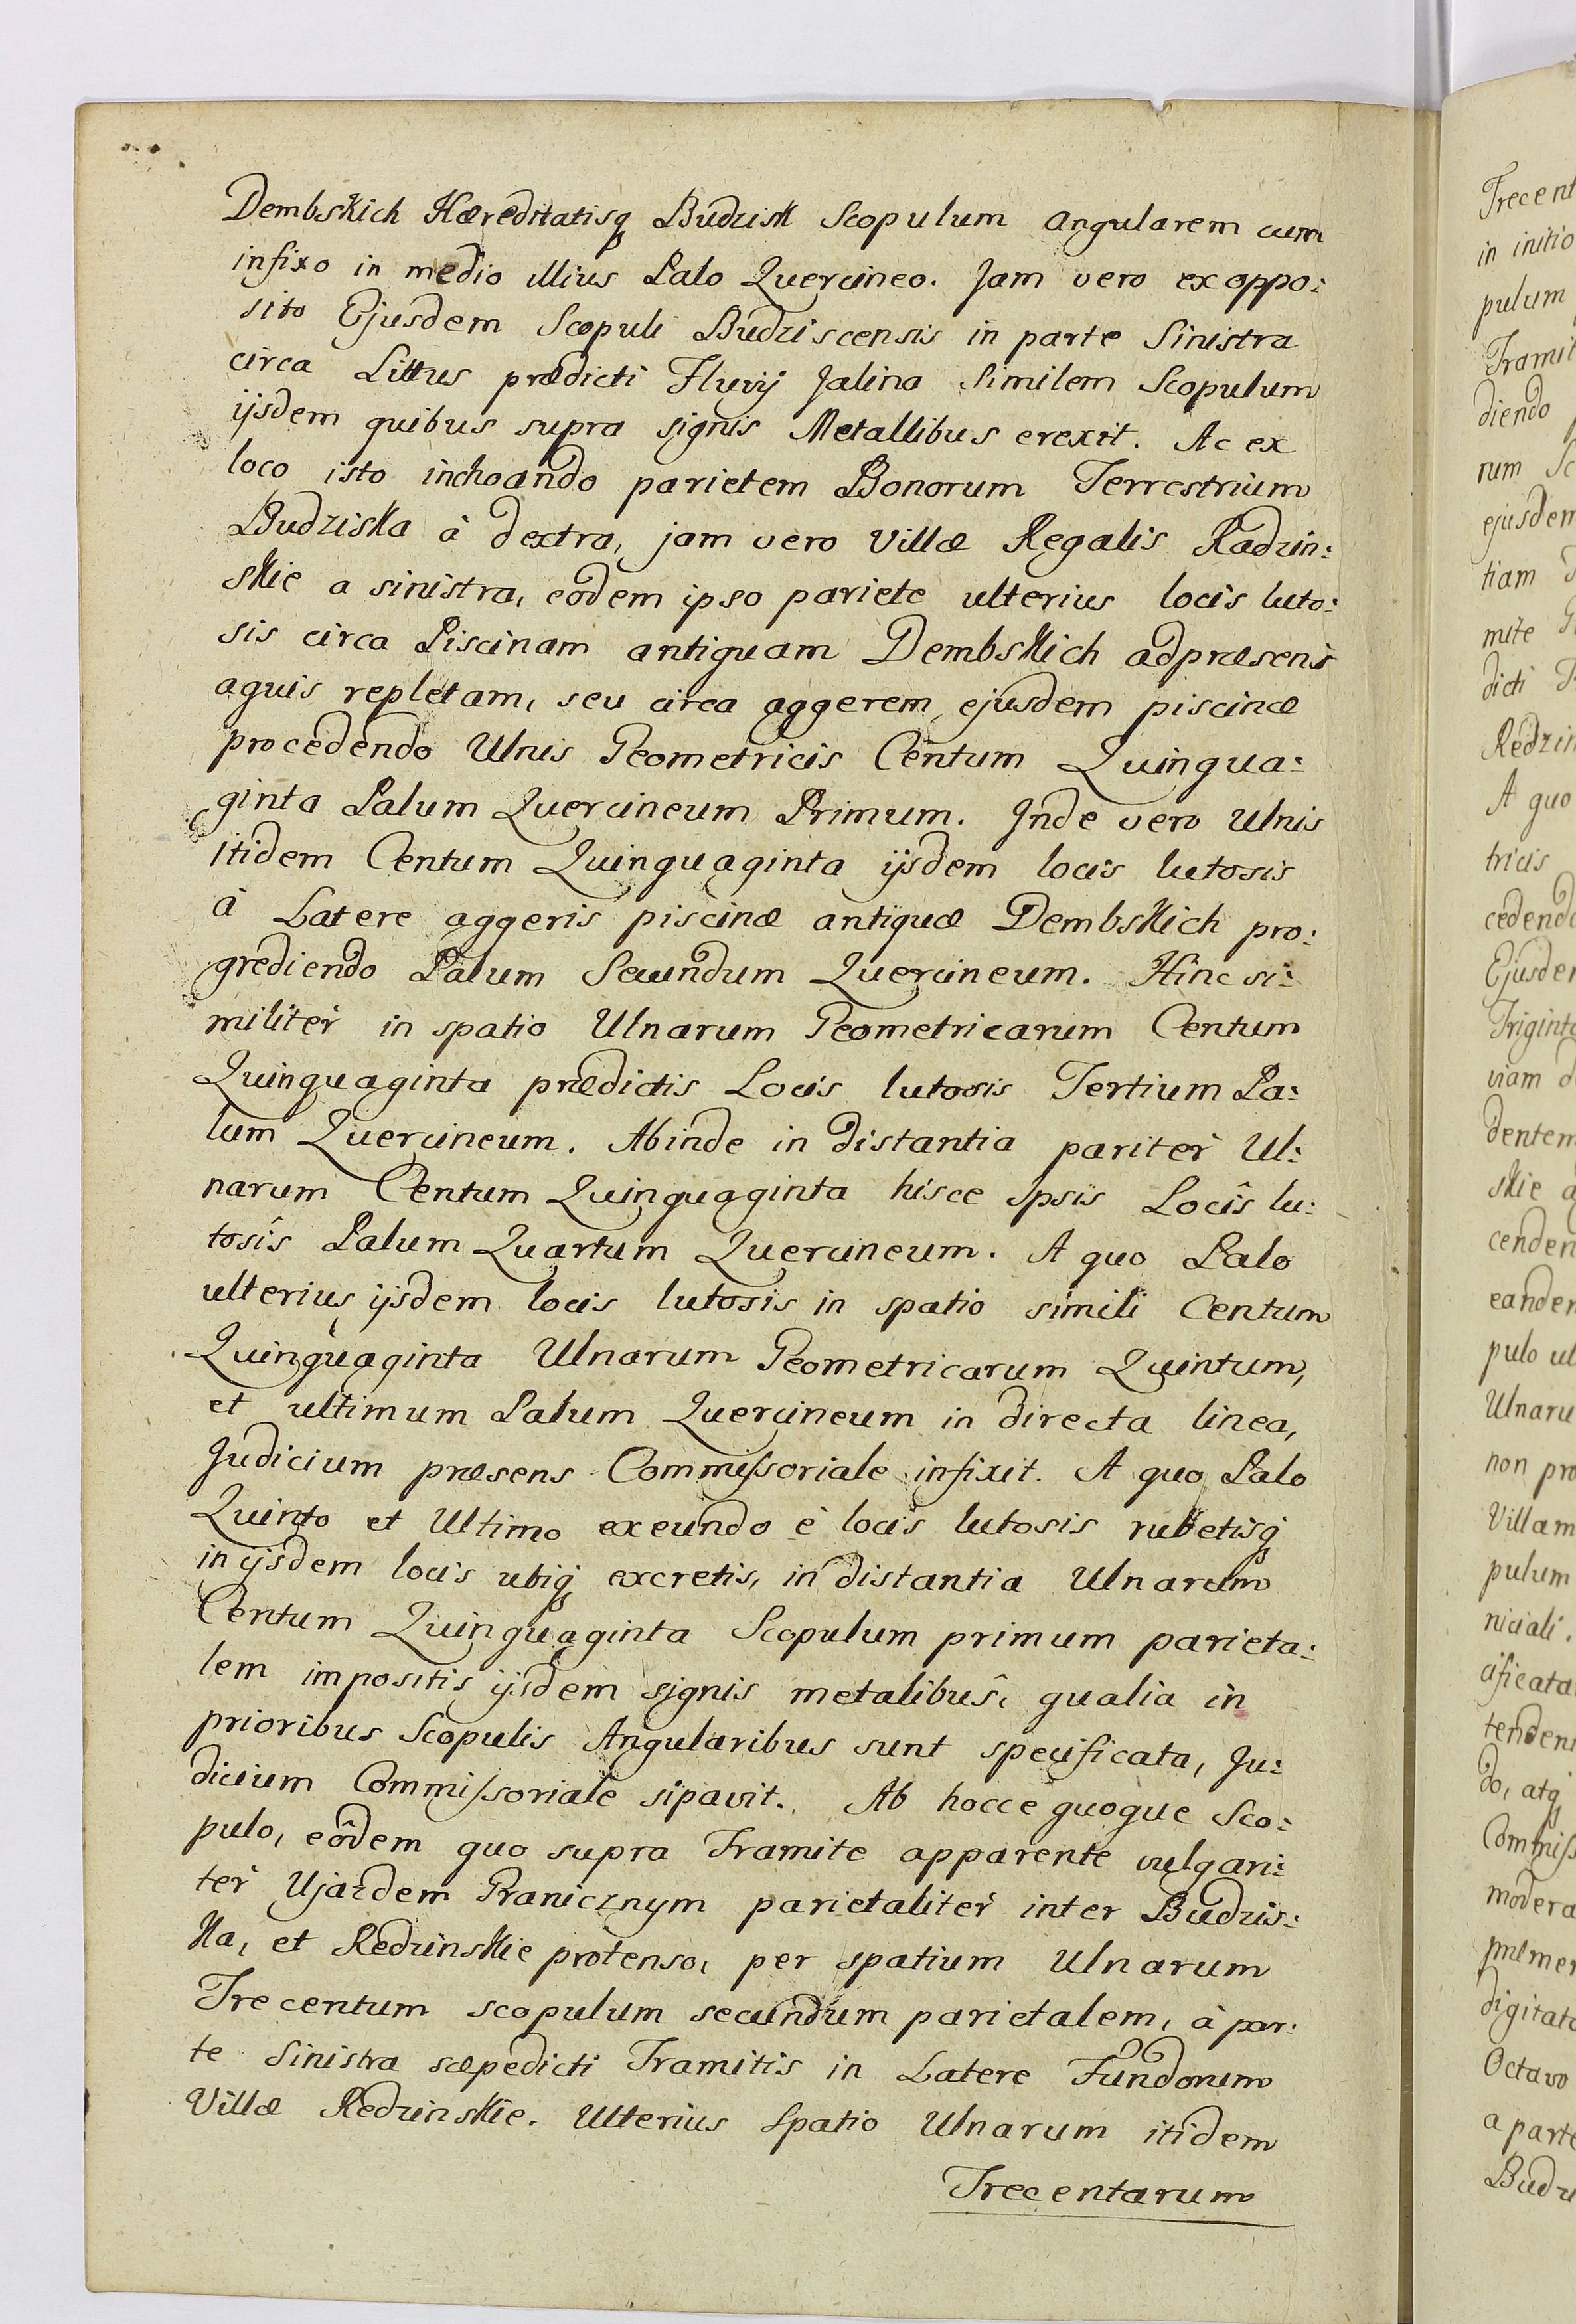 Dembskich Hæreditatisq Budzisk Scopulum Angularem cum
infixo in medio illius Palo Quercineo. Jam vero ex oppo:
sito Ejusdem Scopuli Budziscensis in parte Sinistra
circa Littus prædicti Fluvij Jalina Similem Scopulum
ijsdem quibus supra signis Metallibus erexit. Ac ex
loco isto inchoando parietem Bonorum Terrestrium
Budziska à dextra, jam vero Villæ Regalis Radzin:
skie a sinistra, eodem ipso pariete ulterius locis luto:
sis circa Piscinam antiquam Dembskich adpræsens
aquis repletam, seu circa aggerem ejusdem piscinæ
procedendo Ulnis Geometricis Centum Quinqua:
ginta Palum Quercineum Primum. Jnde vero Ulnis
itidem Centum Quinquaginta ijsdem locis lutosis
à Latere aggeris piscinæ antiquæ Dembskich pro:
grediendo Palum Secundum Quercineum. Hinc si:
militer in spatio Ulnarum Geometricarum Centum
Quinquaginta prædictis Locis lutosis Tertium Pa:
lum Quercineum. Abinde in distantia pariter Ul:
narum Centum Quinquaginta hisce ipsis Locîs lu:
tosîs Palum Quartum Quercineum. A quo Palo
ulterius ijsdem locis lutosis in spatio simili Centum
Quinquaginta Ulnarum Geometricarum Quintum,
et ultimum Palum Quercineum in directa linea,
Judicium præsens Commißoriale infixit. A quo Palo
Quinto et Ultimo exeundo è locis lutosis rubetisq
in ijsdem locis ubiq excretis, in distantia Ulnarum
Centum Quinquaginta Scopulum primum parieta:
lem impositis ijsdem signis metalibus, qualia in
prioribus Scopulis Angularibus sunt specificata, Ju:
dicium Commißoriale sipavit. Ab hocce quoque Sco:
pulo, eôdem quo supra Tramite apparente vulgari:
ter Ujazdem Granicznym parietaliter inter Budzis:
ka, et Redzinskie protenso, per spatium Ulnarum
Trecentum scopulum secundum parietalem, à par:
te Sinistra sæpedicti Tramitis in Latere Fundorum
Villæ Redzinskie. Ulterius Spatio Ulnarum itidem
Trecentarum
Trecent
in initio
pulum
Tramit
diendo
rum Sc
ejusdem
tiam
mite
dicti
Redzin
A quo
tricis
cedendo
Ejusdem
Triginta
viam
dentem
skie
cenden
eandem
pulo ul
Ulnaru
non pro
Villam
pulum
niciali.
cificata
tenden
do, atq
Commiß
modera
præmer
digitato
Octavo
a parte
Budz